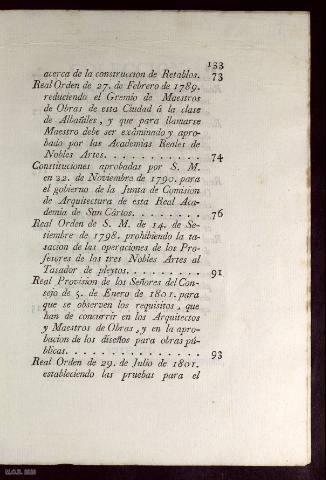 133
acerca de la construccion de Retablos. 73
Real Orden de 27. de Febrero de 1789.
reduciendo el Gremio de Maestros
de Obras de esta Ciudad á la clase
de Albañiles, y que para llamarse
Maestro debe ser exâminado y apro-
bado por las Academias Reales de
Nobles Artes. . . . . . . . . . . . 74
Constituciones aprobadas por S. M.
en 22. de Noviembre de 1790. para
el gobierno de la Junta de Comision
de Arquitectura de esta Real Aca-
demia de San Cárlos. . . . . . . . 76
Real Orden de S. M. de 14. de Se-
tiembre de 1798. prohibiendo la ta-
sacion de las operaciones de los Pro-
fesores de las tres Nobles Artes al
Tasador de pleytos. . . . . . . . . 91
Real Provision de los Señores del Con-
sejo de 5. de Enero de 1801. para
que se observen los requisitos, que
han de concurrir en los Arquitectos
y Maestros de Obras, y en la apro-
bacion de los diseños para obras pú-
blicas. . . . . . . . . . . . . . . . 93
Real Orden de 29. de Julio de 1801.
estableciendo las pruebas para el